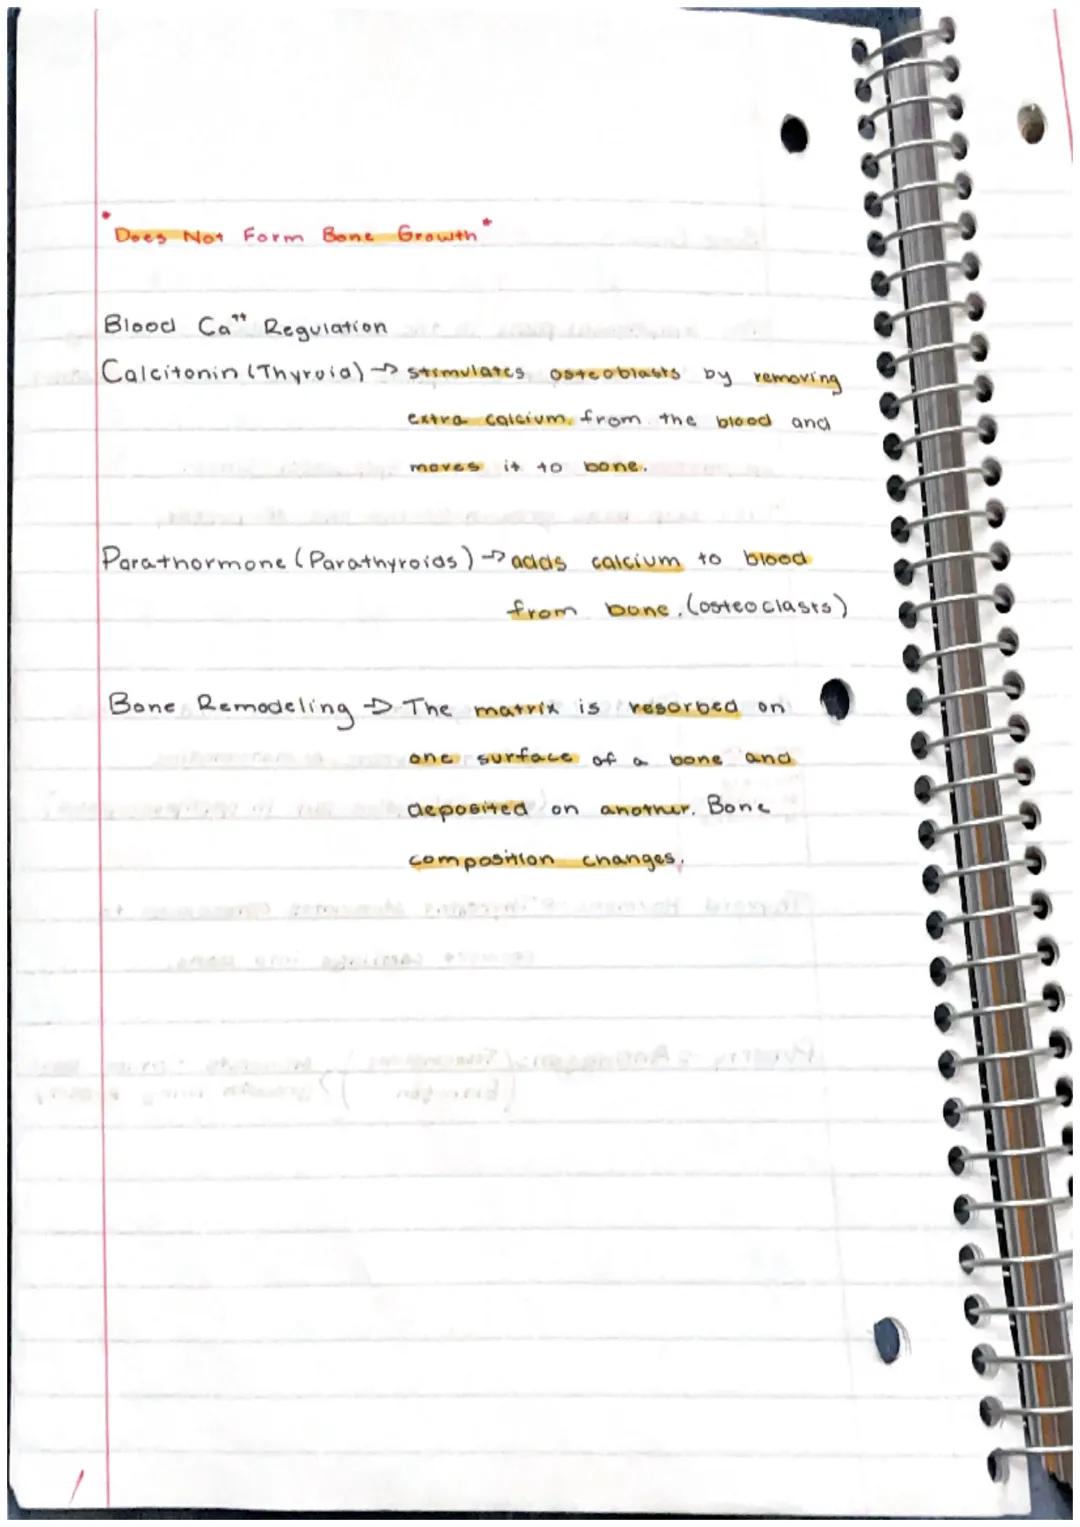 *Does Not Form Bone Growth*
Blood Ca⁺⁺ Regulation
Calcitonin (Thyroid) → stimulates osteoblasts by removing
extra calcium from the blood and
moves it to bone.
Parathormone (Parathyroids) → adds calcium to blood
from bone. (osteoclasts)
Bone Remodeling → The matrix is resorbed on
one surface of a bone and
deposited on another. Bone
composition changes.